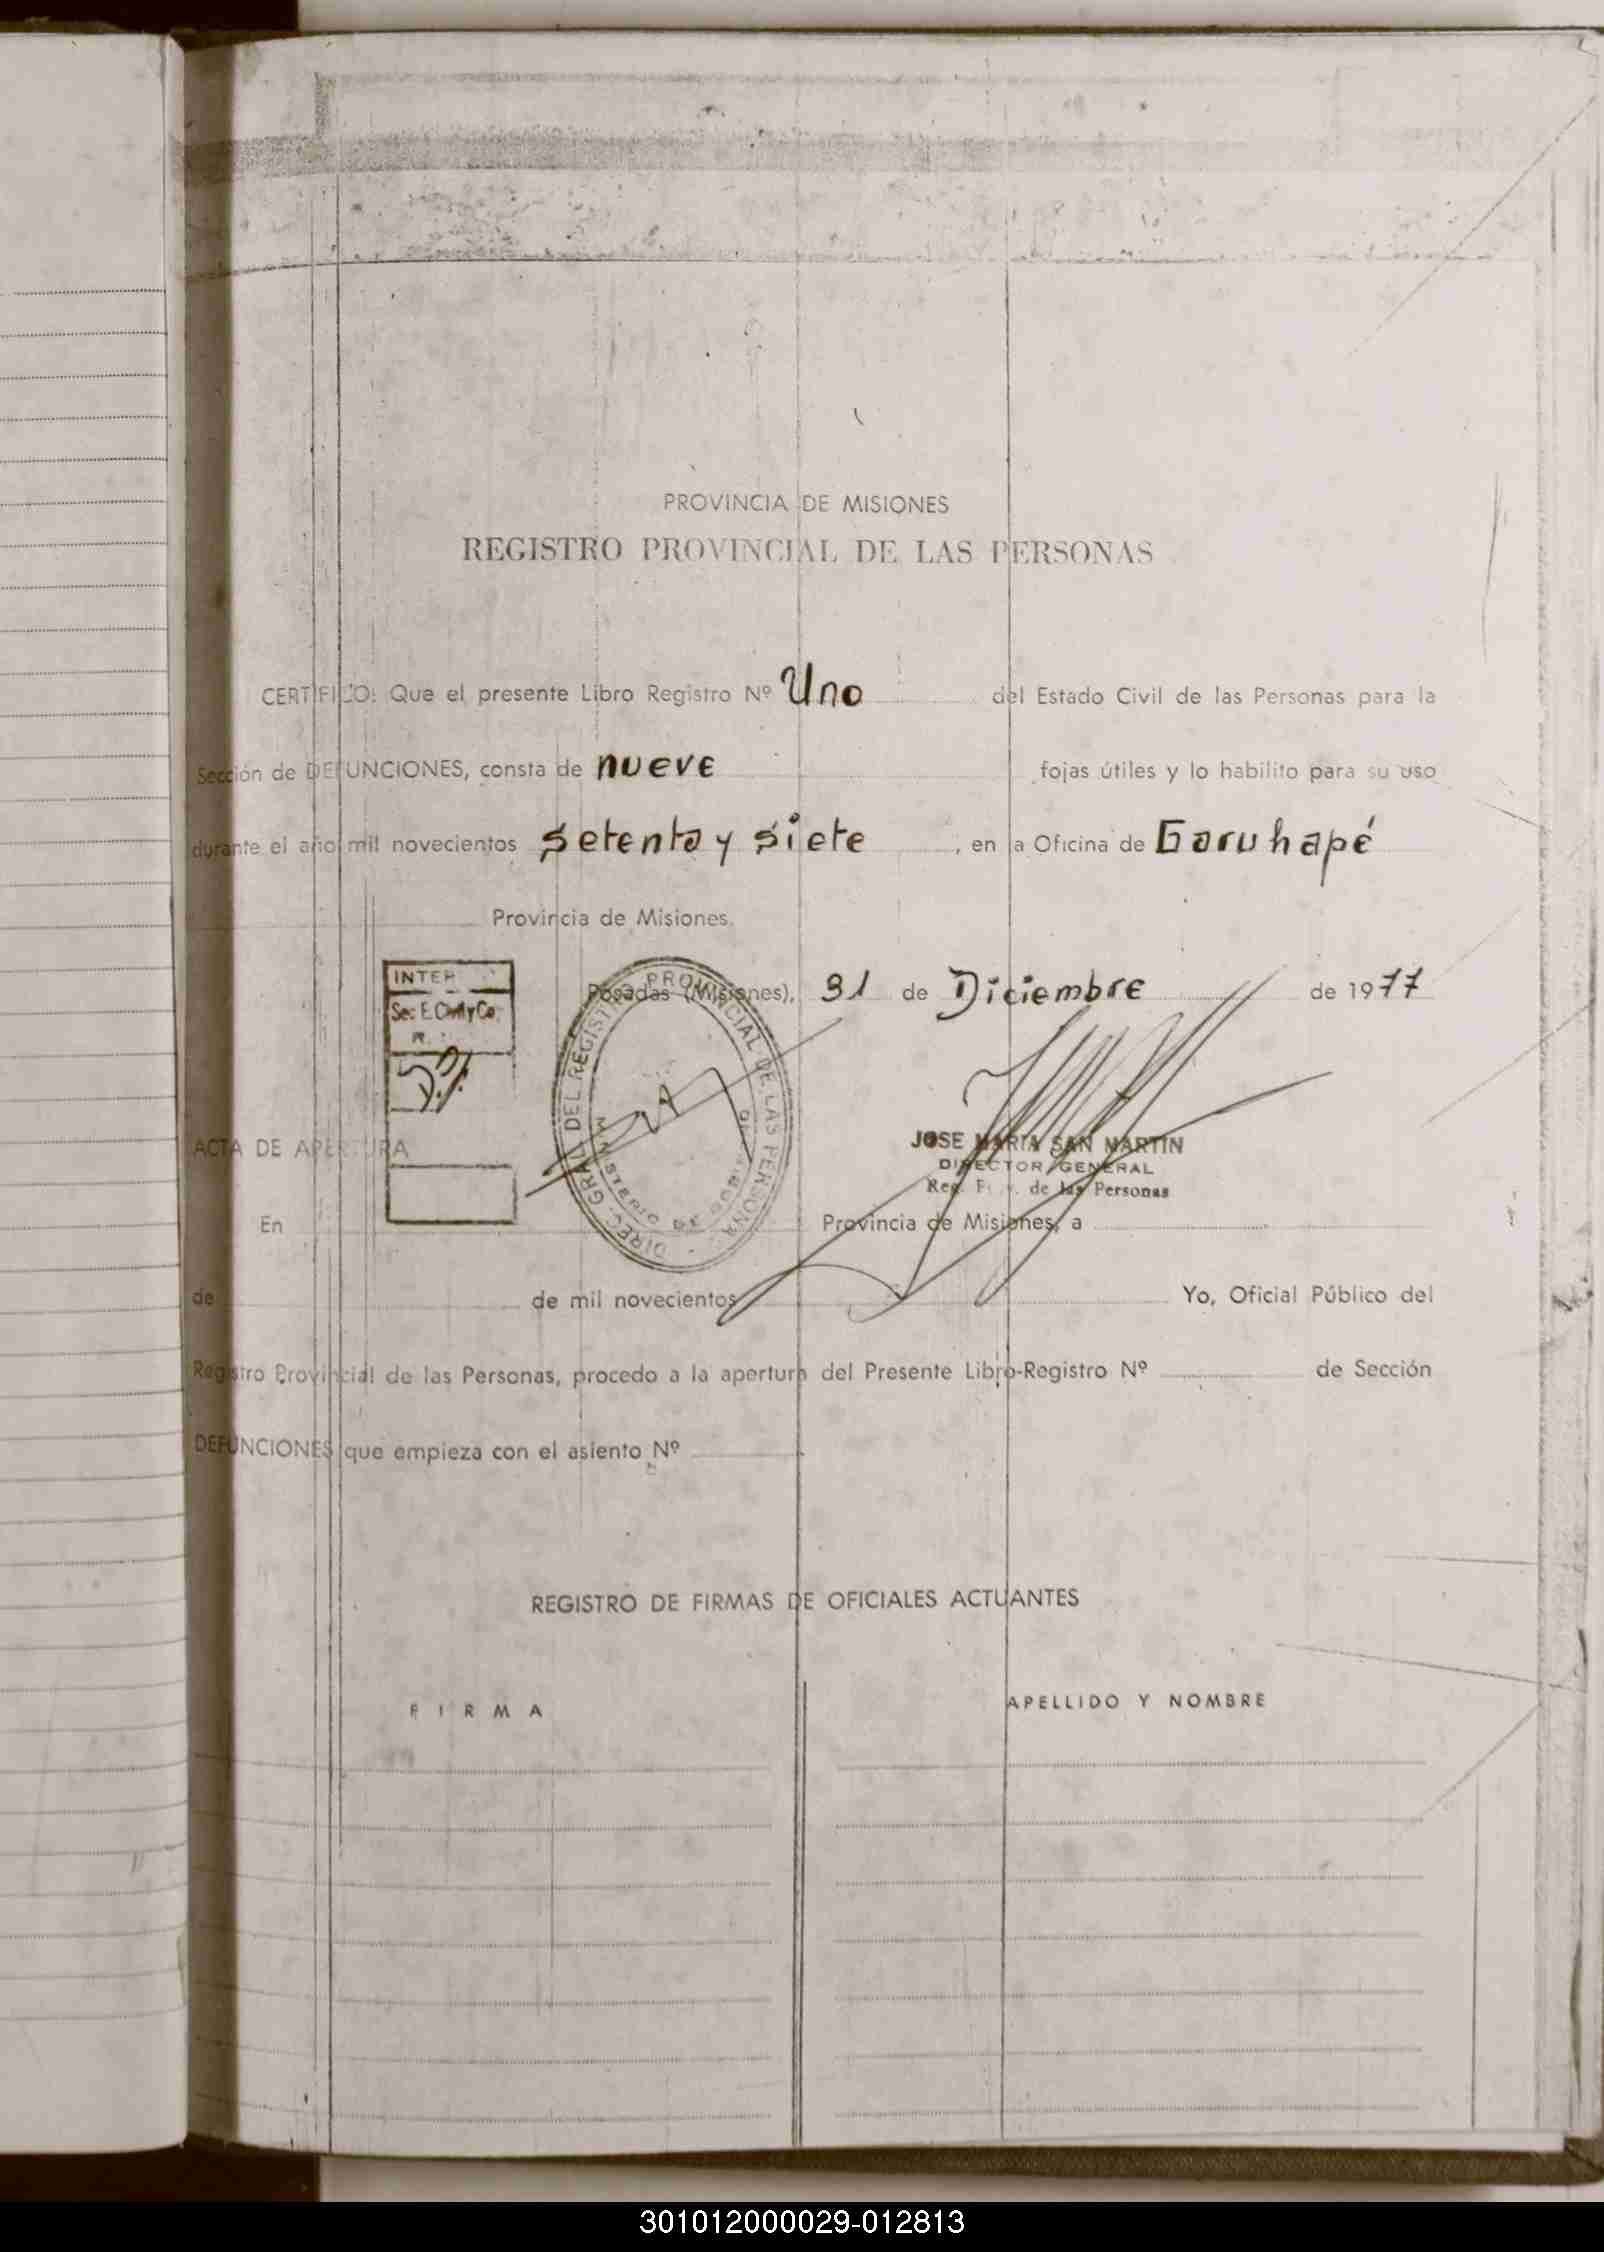 PROVINCIA DE MISIONES
REGISTRO PROVINCIAL DE LAS PERSONAS
CERTIFICO: Que el presente Libro Registro Nº Uno del Estado Civil de las Personas para la
Sección de DEFUNCIONES, consta de nueve fojas útiles y lo habilito para su uso
durante el año mil novecientos setenta y siete, en la Oficina de Garuhapé
Provincia de Misiones.
Posadas (Misiones), 31 de Diciembre de 1977
INTER
Sec E. Civil y Ca.
DIREC. GRAL. DEL REGISTRO PROVINCIAL DE LAS PERSONAS
MINISTERIO DE GOBIERNO
JOSE MARIA SAN MARTIN
DIRECTOR GENERAL
Reg. de las Personas
ACTA DE APERTURA
En Provincia de Misiones, a
de de mil novecientos Yo, Oficial Público del
Registro Provincial de las Personas, procedo a la apertura del Presente Libro-Registro Nº de Sección
DEFUNCIONES que empieza con el asiento Nº
REGISTRO DE FIRMAS DE OFICIALES ACTUANTES
FIRMA APELLIDO Y NOMBRE
301012000029-012813